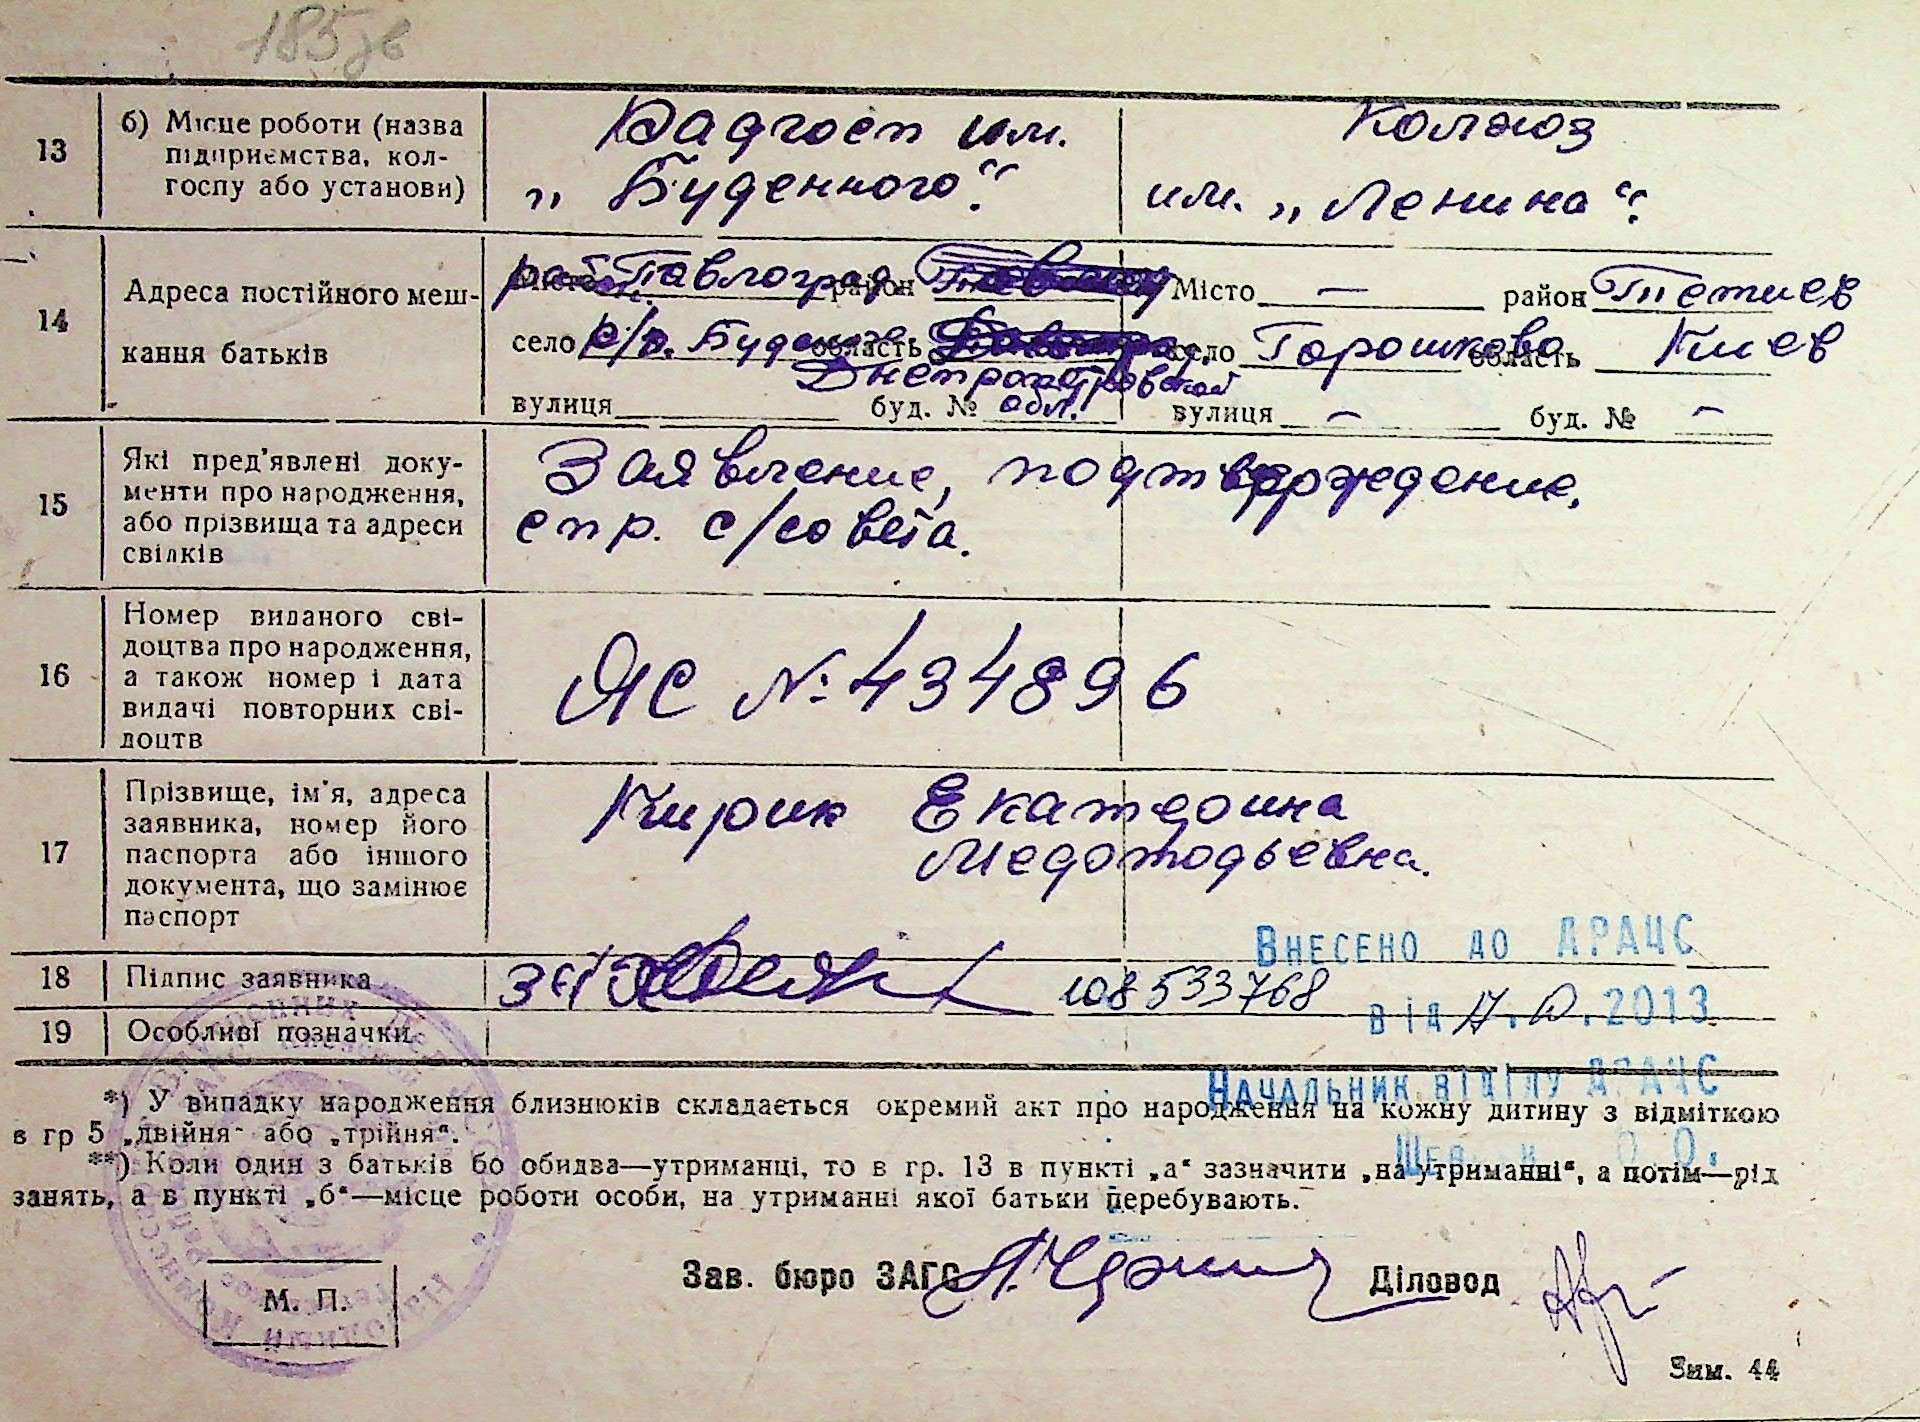 185зв
13 б) Місце роботи (назва підприємства, колгоспу або установи)
Радгосп им. „Буденного“.
Колхоз им. „Ленина“.
14 Адреса постійного мешкання батьків
Павлоград район
село с/з. Буденого область
Днепропетровской
вулиця буд. № обл.
Місто — район Тетиев
село Горошково область Киев
вулиця — буд. № —
15 Які пред'явлені документи про народження, або прізвища та адреси свідків
Заявление, подтверждение,
спр. с/совета.
16 Номер виданого свідоцтва про народження, а також номер і дата видачі повторних свідоцтв
ЯС № 434896
17 Прізвище, ім'я, адреса заявника, номер його паспорта або іншого документа, що замінює паспорт
Кирик Екатерина
Внесено до ДРАЧС
18 Підпис заявника
108533768
від .2013
19 Особливі позначки
Начальник відділу ДРАЧС
*) У випадку народження близнюків складається окремий акт про народження на кожну дитину з відміткою
в гр 5 „двійня“ або „трійня“.
О.О.
**) Коли один з батьків бо обидва—утриманці, то в гр. 13 в пункті „а“ зазначити „на утриманні“, а потім—рід
занять, а в пункті „б“—місце роботи особи, на утриманні якої батьки перебувають.
Зав. бюро ЗАГС Діловод
М. П.
Зим. 44